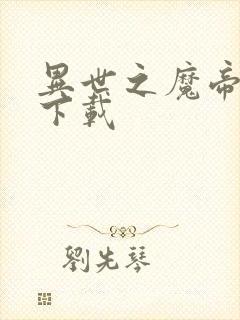 異世之魔帝
下載
劉先琴